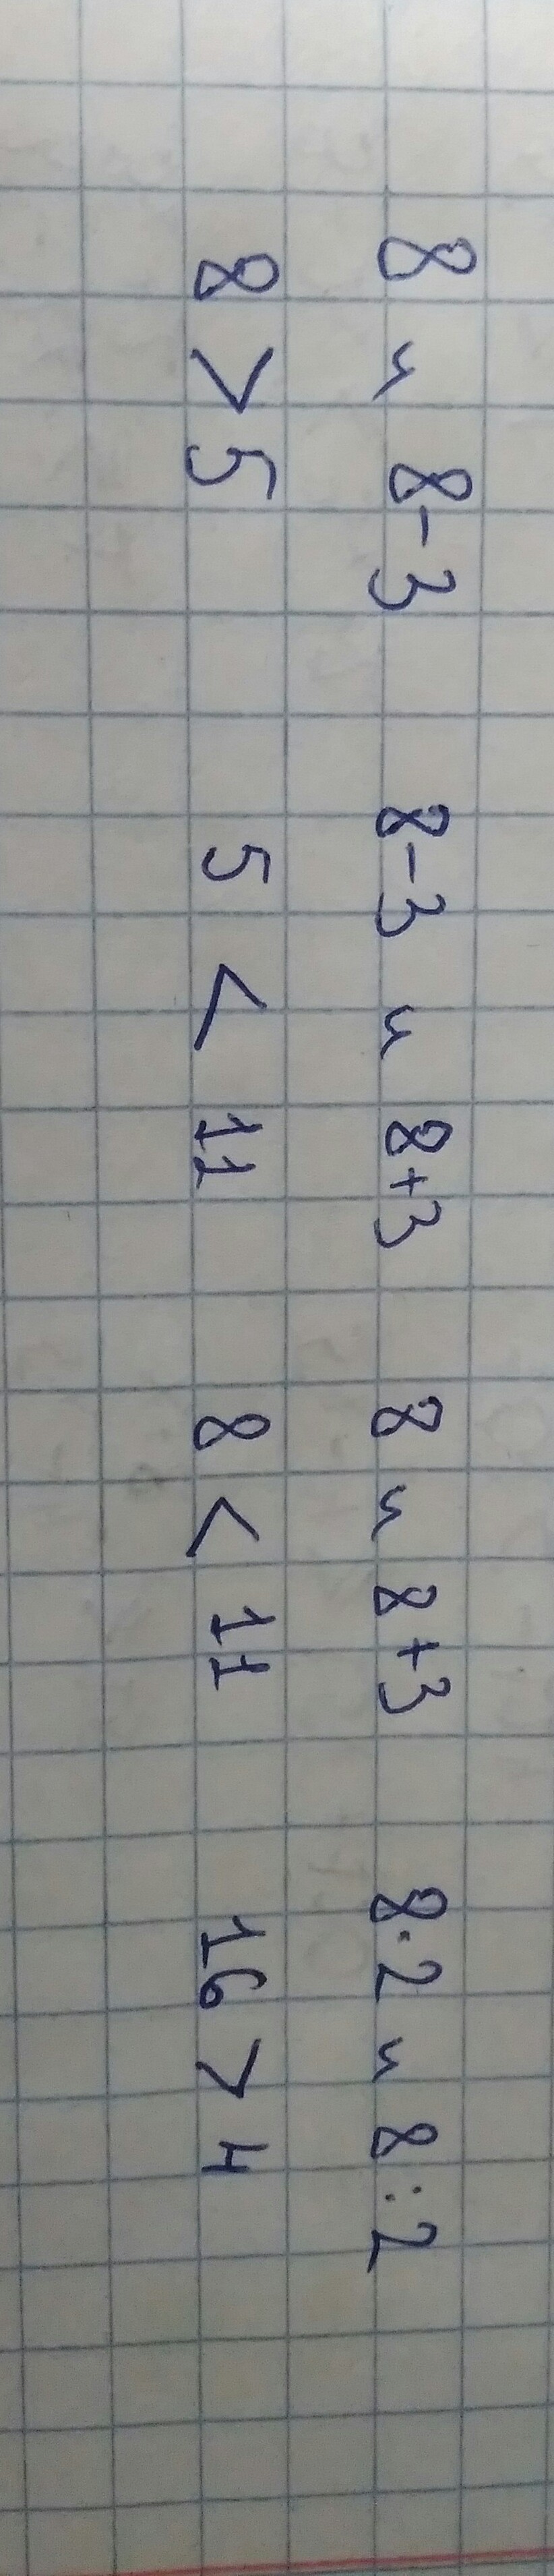 8 и 8-3 8-3 и 8+3 8 и 8+3 8·2 и 8:2
8 > 5 5 < 11 8 < 11 16 > 4